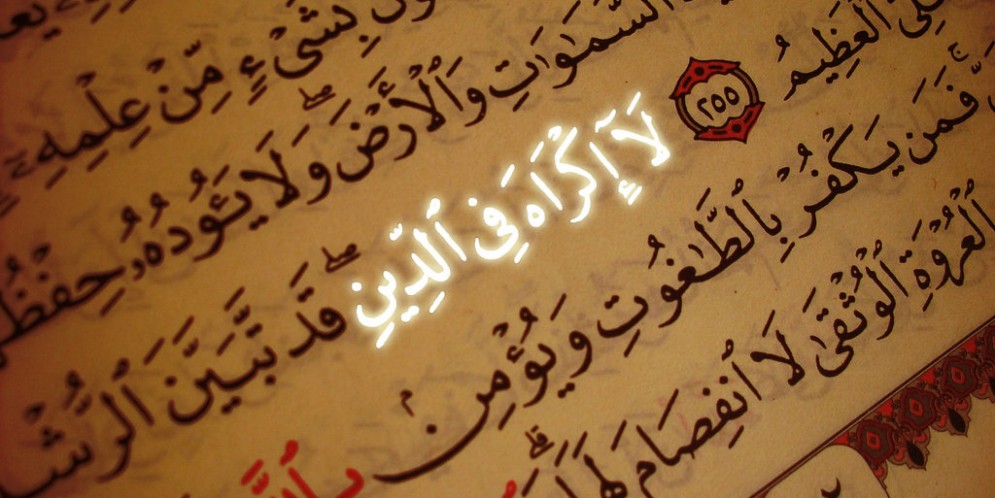 بِشَىْءٍ مِّنْ عِلْمِهِۦٓ
ٱلسَّمَٰوَٰتِ وَٱلْأَرْضَ ۖ وَلَا يَـُٔودُهُۥ حِفْظُ
ٱلْعَظِيمُ ٢٥٥ لَآ إِكْرَاهَ فِى ٱلدِّينِ ۖ قَد تَّبَيَّنَ ٱلرُّشْ
فَمَن يَكْفُرْ بِٱلطَّٰغُوتِ وَيُؤْمِنۢ
ٱلْعُرْوَةِ ٱلْوُثْقَىٰ لَا ٱنفِصَامَ لَهَا ۗ